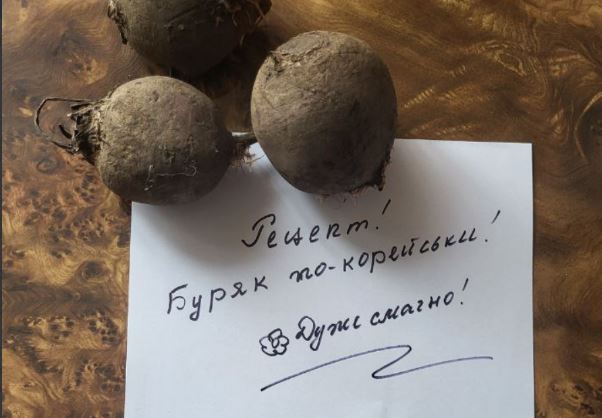 Рецепт!
Буряк по-корейськи!
Дуже смачно!